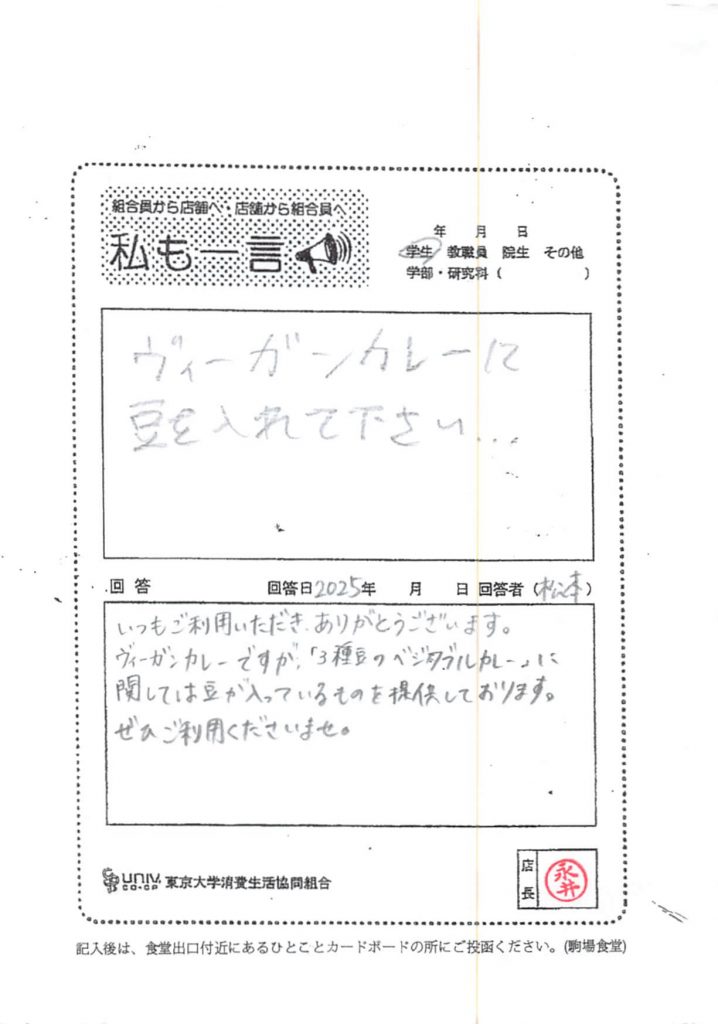 組合員から店舗へ・店舗から組合員へ
私も一言
年 月 日
学生 教職員 院生 その他
学部・研究科 ( )
ヴィーガンカレーに
豆を入れて下さい...
回答 回答日2025年 月 日 回答者 (松本)
いつもご利用いただき、ありがとうございます。
ヴィーガンカレーですが、「3種豆のベジタブルカレー」に
関しては豆が入っているものを提供しております。
ぜひご利用くださいませ。
UNIV. CO-OP 東京大学消費生活協同組合
店長 永井
記入後は、食堂出口付近にあるひとことカードボードの所にご投函ください。(駒場食堂)